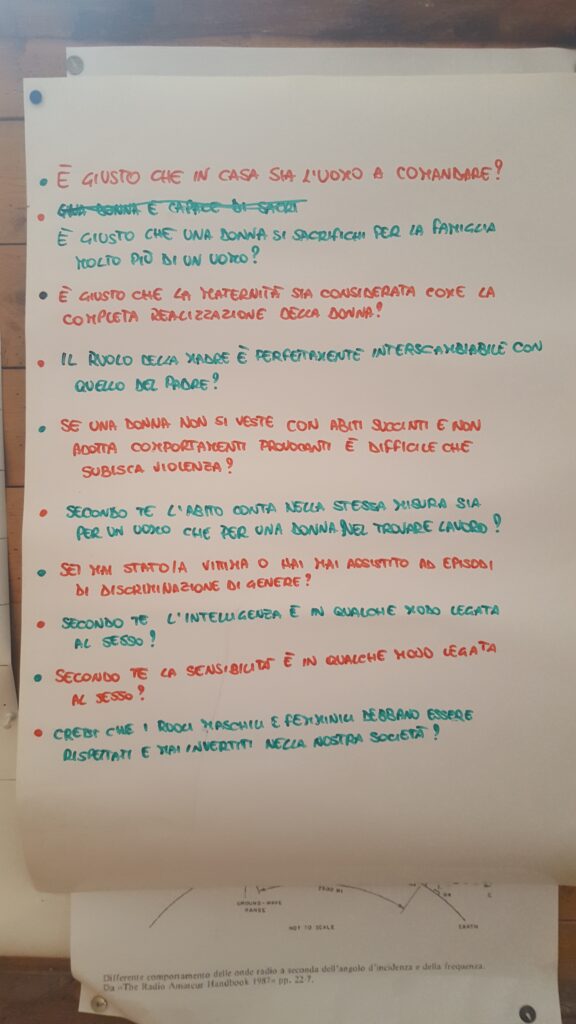 È GIUSTO CHE IN CASA SIA L'UOMO A COMANDARE?
UNA DONNA È CAPACE DI SACRI
È GIUSTO CHE UNA DONNA SI SACRIFICHI PER LA FAMIGLIA
MOLTO PIÙ DI UN UOMO?
È GIUSTO CHE LA MATERNITÀ SIA CONSIDERATA COME LA
COMPLETA REALIZZAZIONE DELLA DONNA?
IL RUOLO DELLA MADRE È PERFETTAMENTE INTERSCAMBIABILE CON
QUELLO DEL PADRE?
SE UNA DONNA NON SI VESTE CON ABITI SUCCINTI E NON
ADOTTA COMPORTAMENTI PROVOCANTI È DIFFICILE CHE
SUBISCA VIOLENZA?
SECONDO TE L'ABITO CONTA NELLA STESSA MISURA SIA
PER UN UOMO CHE PER UNA DONNA NEL TROVARE LAVORO?
SEI MAI STATO/A VITTIMA O HAI MAI ASSISTITO AD EPISODI
DI DISCRIMINAZIONE DI GENERE?
SECONDO TE L'INTELLIGENZA È IN QUALCHE MODO LEGATA
AL SESSO?
SECONDO TE LA SENSIBILITÀ È IN QUALCHE MODO LEGATA
AL SESSO?
CREDI CHE I RUOLI MASCHILI E FEMMINILI DEBBANO ESSERE
RISPETTATI E MAI INVERTITI NELLA NOSTRA SOCIETÀ?
GROUND-WAVE
RANGE
NOT TO SCALE
EARTH
Differente comportamento delle onde radio a seconda dell'angolo d'incidenza e della frequenza.
Da «The Radio Amateur Handbook 1987» pp. 22-7.